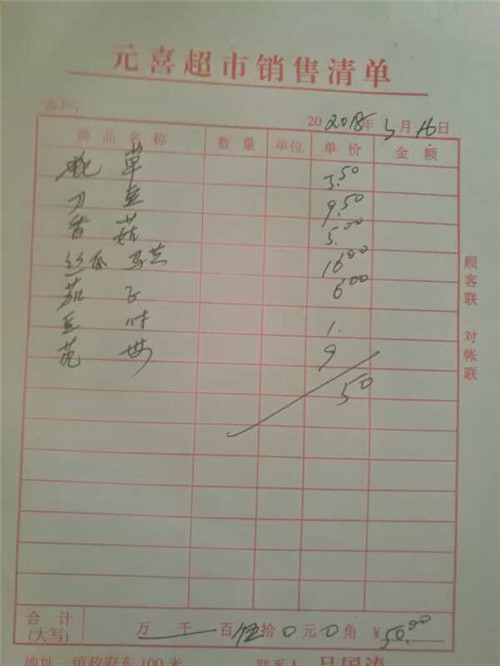 元喜超市销售清单
客户: 20 2018年 3月16日
商品名称 数量 单位 单价 金额
草 3.50
刀豆 9.50
香菇 5.00
丝瓜 16.00
茄子 6.00
豆 1.
9
50
顾客联 对帐联
合计(大写) 万 千 百 伍拾 0元 0角 ¥50.00
地址: 镇政府东100米 联系人 吕国涛